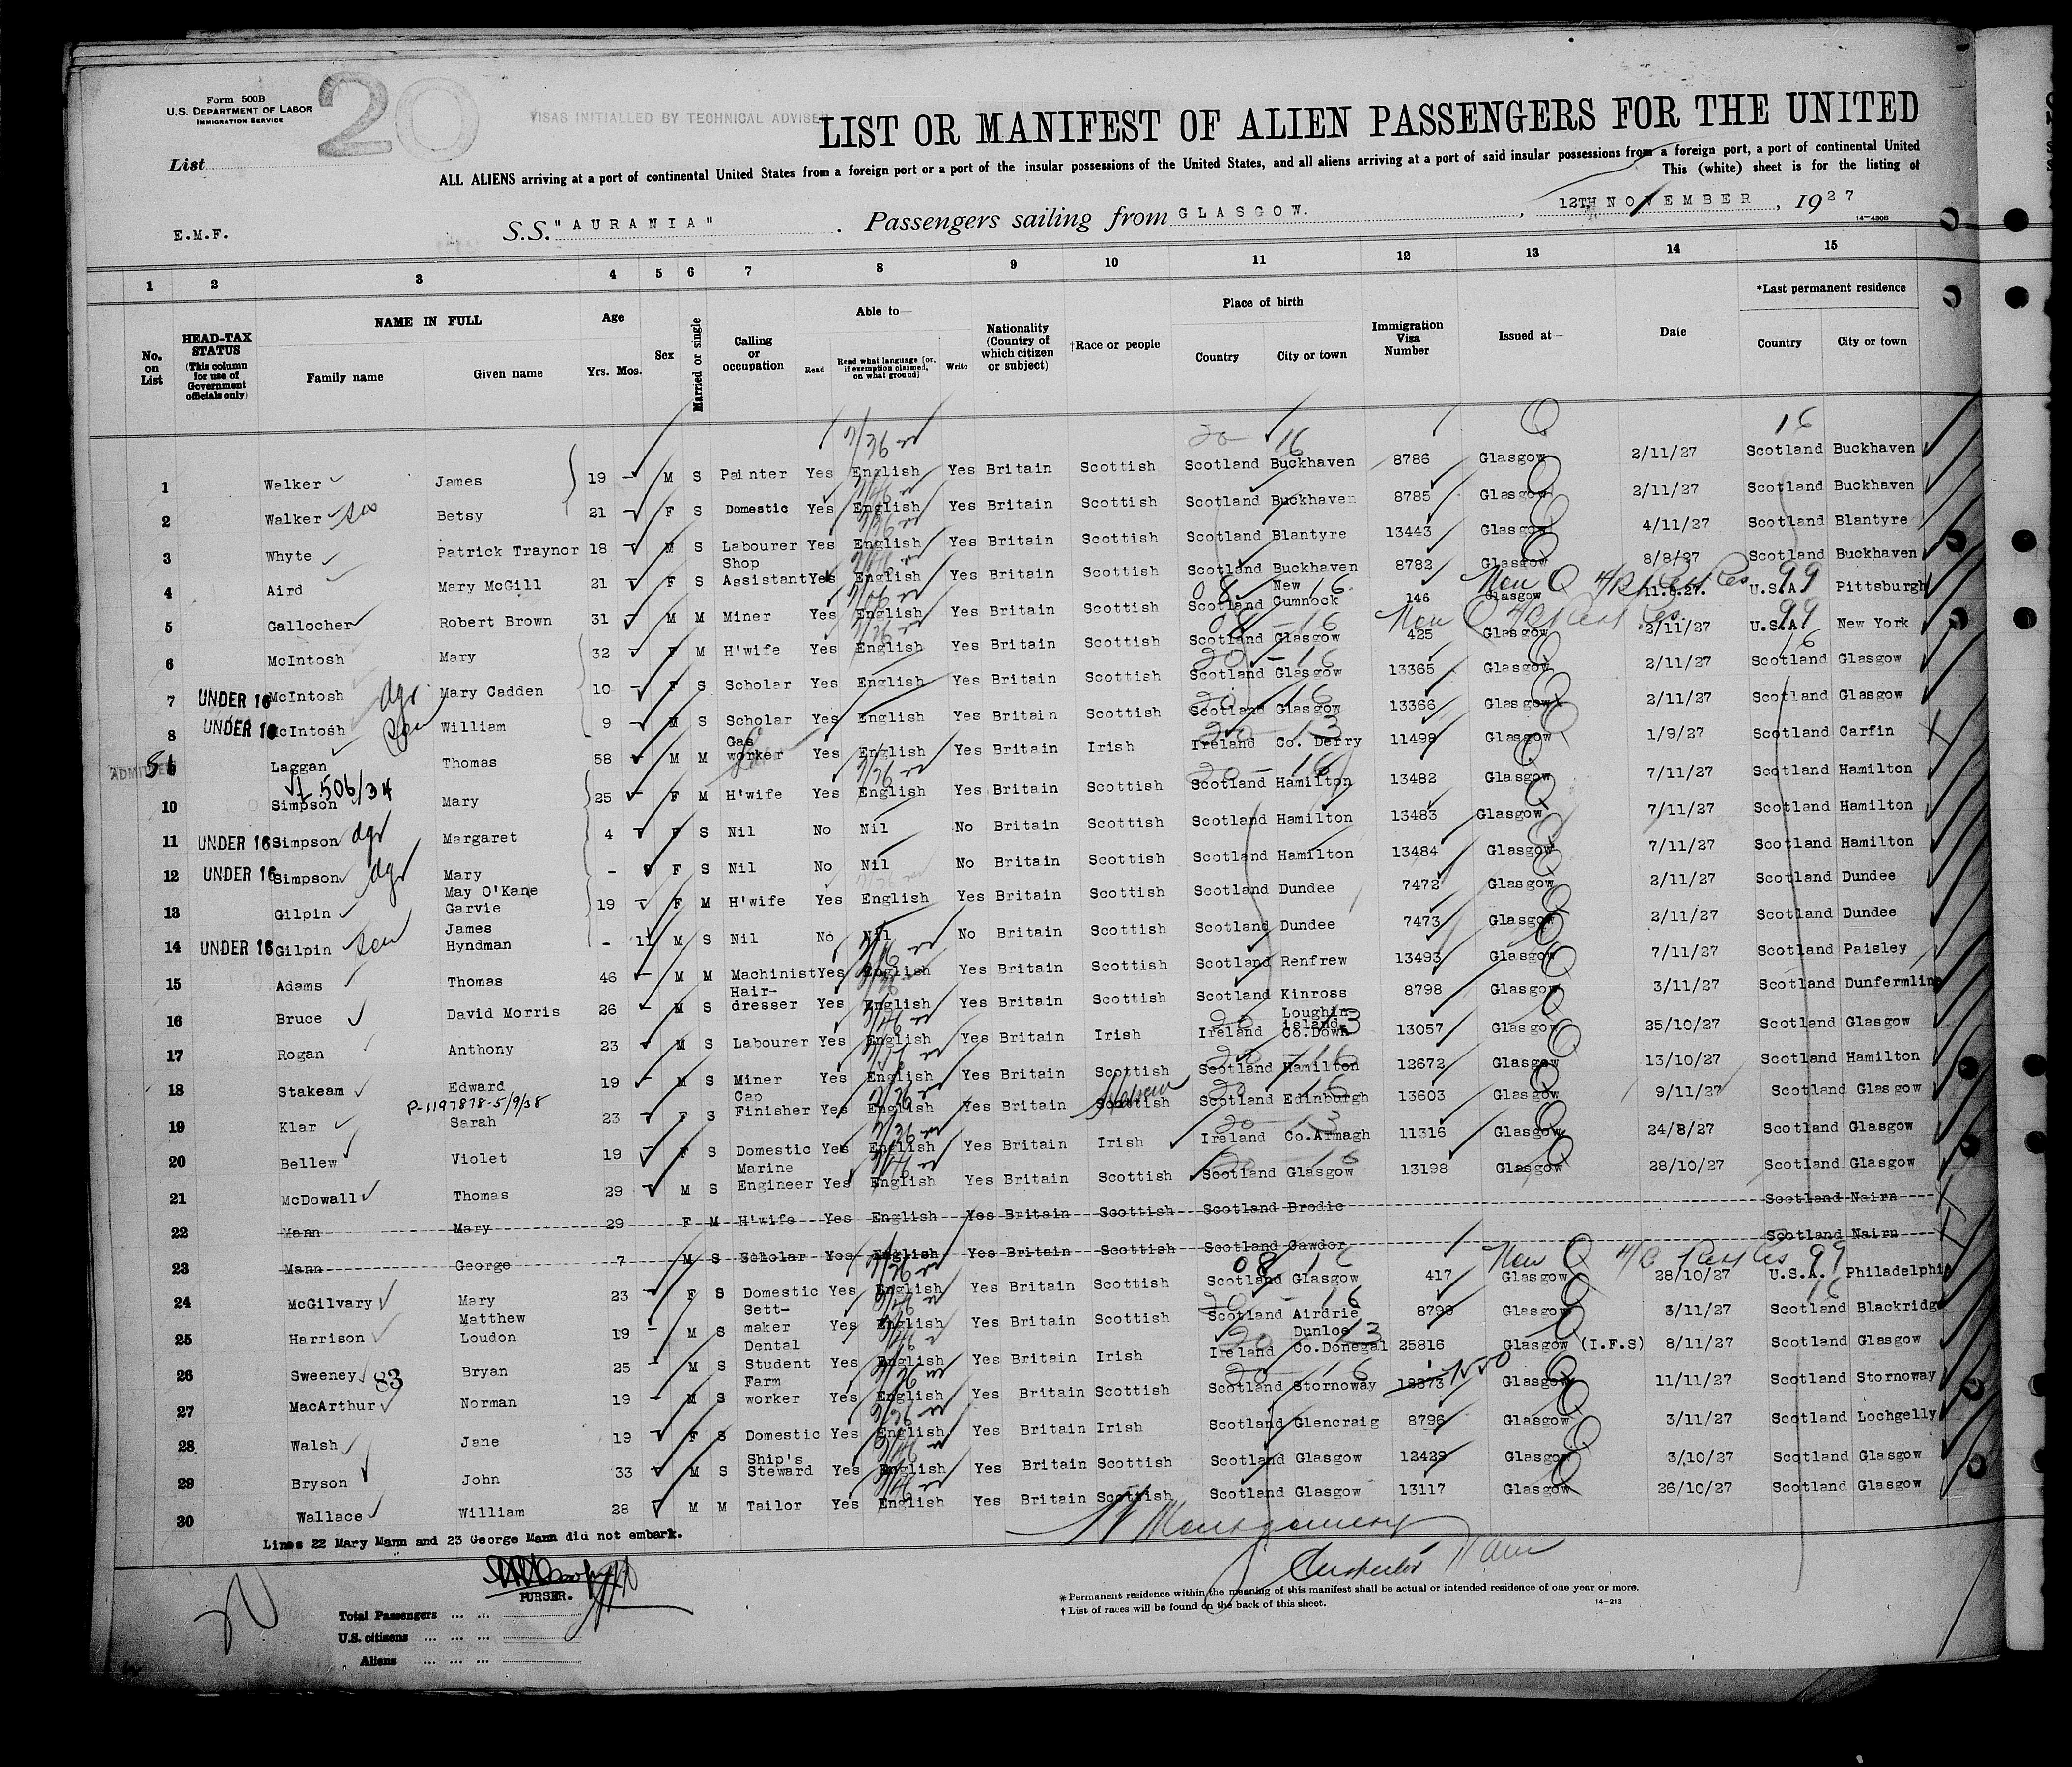 Form 500B
U.S. DEPARTMENT OF LABOR
IMMIGRATION SERVICE
20
VISAS INITIALLED BY TECHNICAL ADVISER
LIST OR MANIFEST OF ALIEN PASSENGERS FOR THE UNITED
List
ALL ALIENS arriving at a port of continental United States from a foreign port or a port of the insular possessions of the United States, and all aliens arriving at a port of said insular possessions from a foreign port, a port of continental United
This (white) sheet is for the listing of
E.M.F. S.S. "AURANIA" . Passengers sailing from GLASGOW. , 12TH NOVEMBER , 1927
14-430B
1 2 3 4 5 6 7 8 9 10 11 12 13 14 15
No. on List
HEAD-TAX STATUS (This column for use of Government officials only)
NAME IN FULL
Family name Given name
Age
Yrs. Mos.
Sex
Married or single
Calling or occupation
Able to—
Read Read what language (or, if exemption claimed, on what ground) Write
Nationality (Country of which citizen or subject)
†Race or people
Place of birth
Country City or town
Immigration Visa Number
Issued at—
Date
*Last permanent residence
Country City or town
1 Walker James 19 M S Painter Yes English Yes Britain Scottish Scotland Buckhaven 8786 Glasgow 2/11/27 Scotland Buckhaven
2 Walker Betsy 21 F S Domestic Yes English Yes Britain Scottish Scotland Buckhaven 8785 Glasgow 2/11/27 Scotland Buckhaven
3 Whyte Patrick Traynor 18 M S Labourer Yes English Yes Britain Scottish Scotland Blantyre 13443 Glasgow 4/11/27 Scotland Blantyre
4 Aird Mary McGill 21 F S Shop Assistant Yes English Yes Britain Scottish Scotland Buckhaven 8782 Glasgow 8/8/27 Scotland Buckhaven
5 Gallocher Robert Brown 31 M M Miner Yes English Yes Britain Scottish Scotland New Cumnock 146 Glasgow U.S.A. Pittsburgh
6 McIntosh Mary 32 F M H'wife Yes English Yes Britain Scottish Scotland Glasgow 425 Glasgow 2/11/27 U.S.A. New York
7 UNDER 16 McIntosh dgr Mary Cadden 10 F S Scholar Yes English Yes Britain Scottish Scotland Glasgow 13365 Glasgow 2/11/27 Scotland Glasgow
8 UNDER 16 McIntosh son William 9 M S Scholar Yes English Yes Britain Scottish Scotland Glasgow 13366 Glasgow 2/11/27 Scotland Glasgow
ADMITTED Laggan Thomas 58 M M Gas worker Yes English Yes Britain Irish Ireland Co. Derry 11499 Glasgow 1/9/27 Scotland Carfin
506/34
10 Simpson Mary 25 F M H'wife Yes English Yes Britain Scottish Scotland Hamilton 13482 Glasgow 7/11/27 Scotland Hamilton
11 UNDER 16 Simpson dgr Margaret 4 F S Nil No Nil No Britain Scottish Scotland Hamilton 13483 Glasgow 7/11/27 Scotland Hamilton
12 UNDER 16 Simpson dgr Mary - F S Nil No Nil No Britain Scottish Scotland Hamilton 13484 Glasgow 7/11/27 Scotland Hamilton
13 Gilpin May O'Kane Garvie 19 F M H'wife Yes English Yes Britain Scottish Scotland Dundee 7472 Glasgow 2/11/27 Scotland Dundee
14 UNDER 16 Gilpin son James Hyndman - 11 M S Nil No Nil No Britain Scottish Scotland Dundee 7473 Glasgow 2/11/27 Scotland Dundee
15 Adams Thomas 46 M M Machinist Yes English Yes Britain Scottish Scotland Renfrew 13493 Glasgow 7/11/27 Scotland Paisley
16 Bruce David Morris 26 M S Hair-dresser Yes English Yes Britain Scottish Scotland Kinross 8798 Glasgow 3/11/27 Scotland Dunfermline
17 Rogan Anthony 23 M S Labourer Yes English Yes Britain Irish Ireland Loughin island Co.Down 13057 Glasgow 25/10/27 Scotland Glasgow
18 Stakeam Edward 19 M S Miner Yes English Yes Britain Scottish Scotland Hamilton 12672 Glasgow 13/10/27 Scotland Hamilton
P-1197878-5/9/38
19 Klar Sarah 23 F S Cap Finisher Yes English Yes Britain Scottish Hebrew Scotland Edinburgh 13603 Glasgow 9/11/27 Scotland Glasgow
20 Bellew Violet 19 F S Domestic Yes English Yes Britain Irish Ireland Co.Armagh 11316 Glasgow 24/8/27 Scotland Glasgow
21 McDowall Thomas 29 M S Marine Engineer Yes English Yes Britain Scottish Scotland Glasgow 13198 Glasgow 28/10/27 Scotland Glasgow
22 Mann Mary 29 F M H'wife Yes English Yes Britain Scottish Scotland Brodie Scotland Nairn
23 Mann George 7 M S Scholar Yes English Yes Britain Scottish Scotland Cawdor Scotland Nairn
24 McGilvary Mary 23 F S Domestic Yes English Yes Britain Scottish Scotland Glasgow 417 Glasgow 28/10/27 U.S.A. Philadelphia
25 Harrison Matthew Loudon 19 M S Sett-maker Yes English Yes Britain Scottish Scotland Airdrie 8799 Glasgow 3/11/27 Scotland Blackridge
26 Sweeney Bryan 25 M S Dental Student Yes English Yes Britain Irish Ireland Dunloe Co.Donegal 25816 Glasgow (I.F.S) 8/11/27 Scotland Glasgow
83
27 MacArthur Norman 19 M S Farm worker Yes English Yes Britain Scottish Scotland Stornoway 12373 Glasgow 11/11/27 Scotland Stornoway
28 Walsh Jane 19 F S Domestic Yes English Yes Britain Irish Scotland Glencraig 8796 Glasgow 3/11/27 Scotland Lochgelly
29 Bryson John 33 M S Ship's Steward Yes English Yes Britain Scottish Scotland Glasgow 12429 Glasgow 3/10/27 Scotland Glasgow
30 Wallace William 28 M M Tailor Yes English Yes Britain Scottish Scotland Glasgow 13117 Glasgow 26/10/27 Scotland Glasgow
Lines 22 Mary Mann and 23 George Mann did not embark.
Montgomery
PURSER.
Total Passengers
U.S. citizens
Aliens
* Permanent residence within the meaning of this manifest shall be actual or intended residence of one year or more.
† List of races will be found on the back of this sheet.
14-213